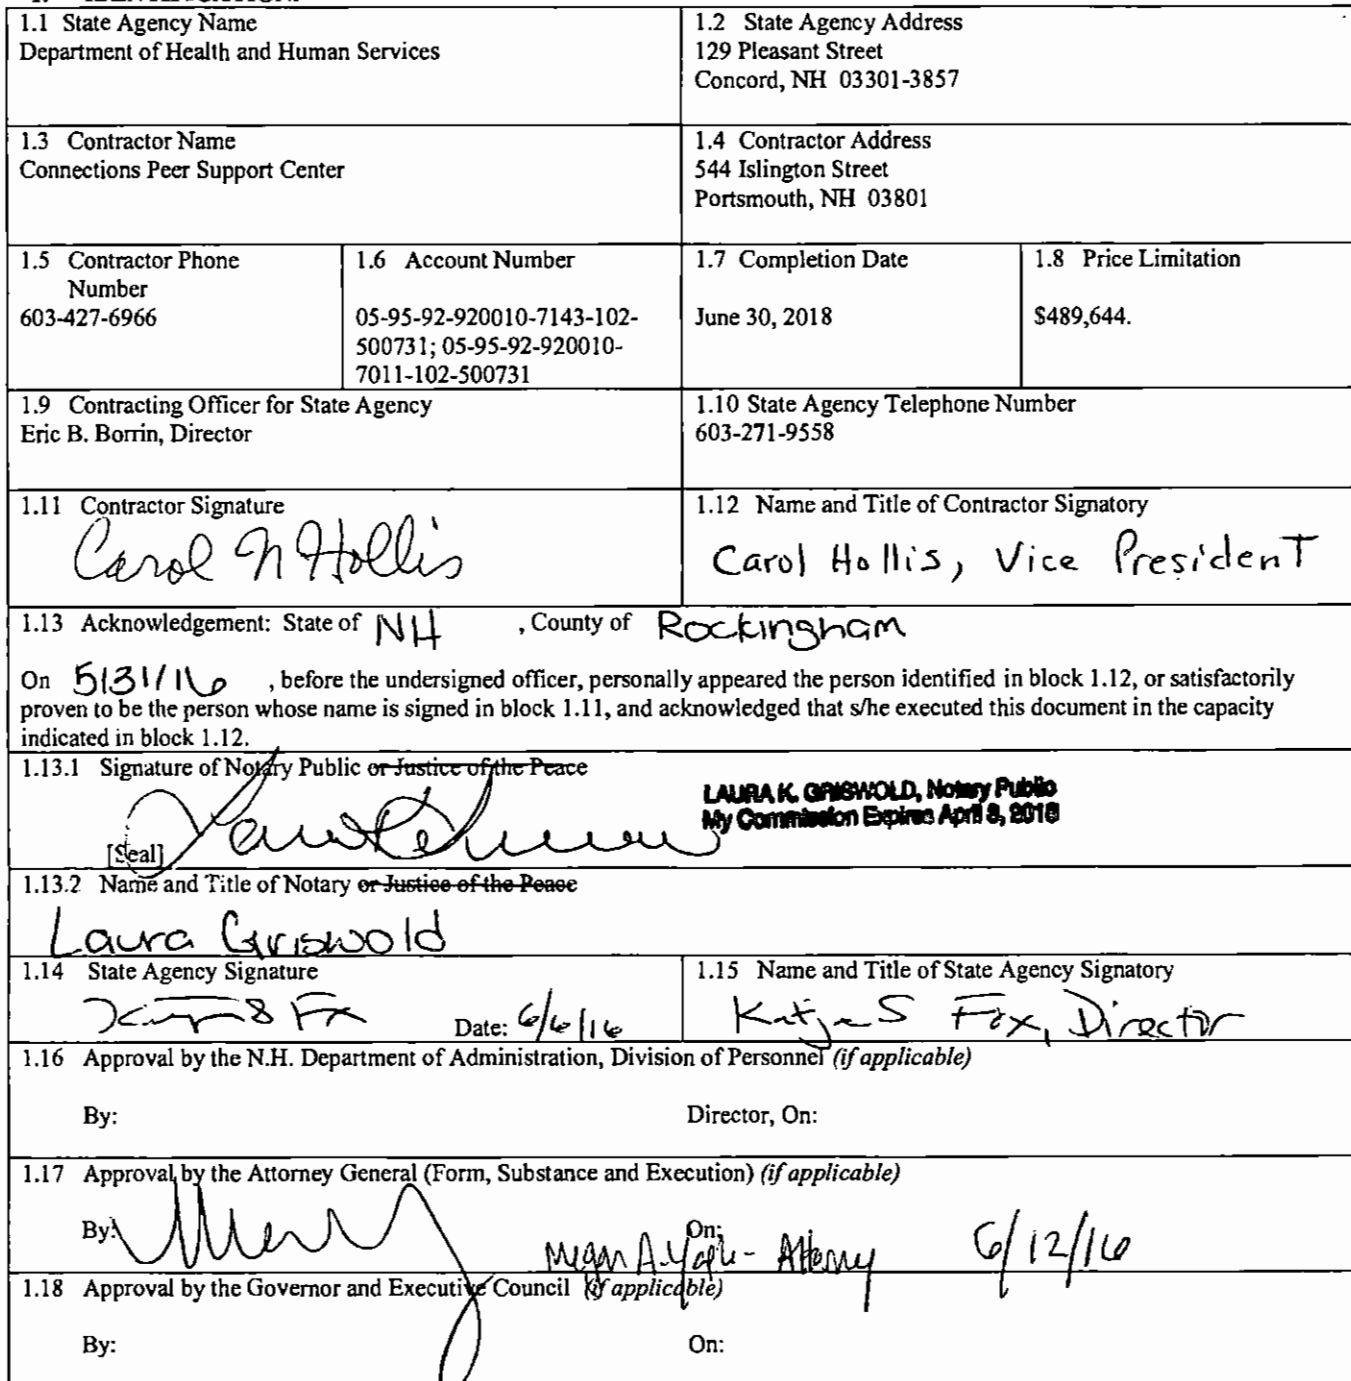 1.1 State Agency Name
Department of Health and Human Services
1.2 State Agency Address
129 Pleasant Street
Concord, NH 03301-3857
1.3 Contractor Name
Connections Peer Support Center
1.4 Contractor Address
544 Islington Street
Portsmouth, NH 03801
1.5 Contractor Phone
Number
603-427-6966
1.6 Account Number
05-95-92-920010-7143-102-
500731; 05-95-92-920010-
7011-102-500731
1.7 Completion Date
June 30, 2018
1.8 Price Limitation
$489,644.
1.9 Contracting Officer for State Agency
Eric B. Borrin, Director
1.10 State Agency Telephone Number
603-271-9558
1.11 Contractor Signature
Carol N Hollis
1.12 Name and Title of Contractor Signatory
Carol Hollis, Vice President
1.13 Acknowledgement: State of NH , County of Rockingham
On 5/31/16 , before the undersigned officer, personally appeared the person identified in block 1.12, or satisfactorily
proven to be the person whose name is signed in block 1.11, and acknowledged that s/he executed this document in the capacity
indicated in block 1.12.
1.13.1 Signature of Notary Public or Justice of the Peace
LAURA K. GRISWOLD, Notary Public
My Commission Expires April 3, 2018
[Seal]
1.13.2 Name and Title of Notary or Justice of the Peace
Laura Griswold
1.14 State Agency Signature
Date: 6/6/16
1.15 Name and Title of State Agency Signatory
Katja S Fox, Director
1.16 Approval by the N.H. Department of Administration, Division of Personnel (if applicable)
By: Director, On:
1.17 Approval by the Attorney General (Form, Substance and Execution) (if applicable)
By: On:
Megan A. Yaple - Attorney 6/12/16
1.18 Approval by the Governor and Executive Council (if applicable)
By: On: